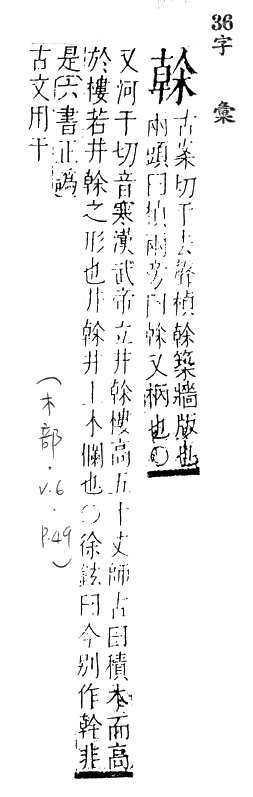 36字彙
榦
古案切干去聲楨榦築牆版也
兩頭曰楨兩旁曰榦又柄也○
又河干切音寒漢武帝立井榦樓高五十丈師古曰積木而高
於樓若井榦之形也井榦井上木欄也○徐鉉曰今別作幹非
是六書正譌
古文用干
(木部.v.6.p.49)